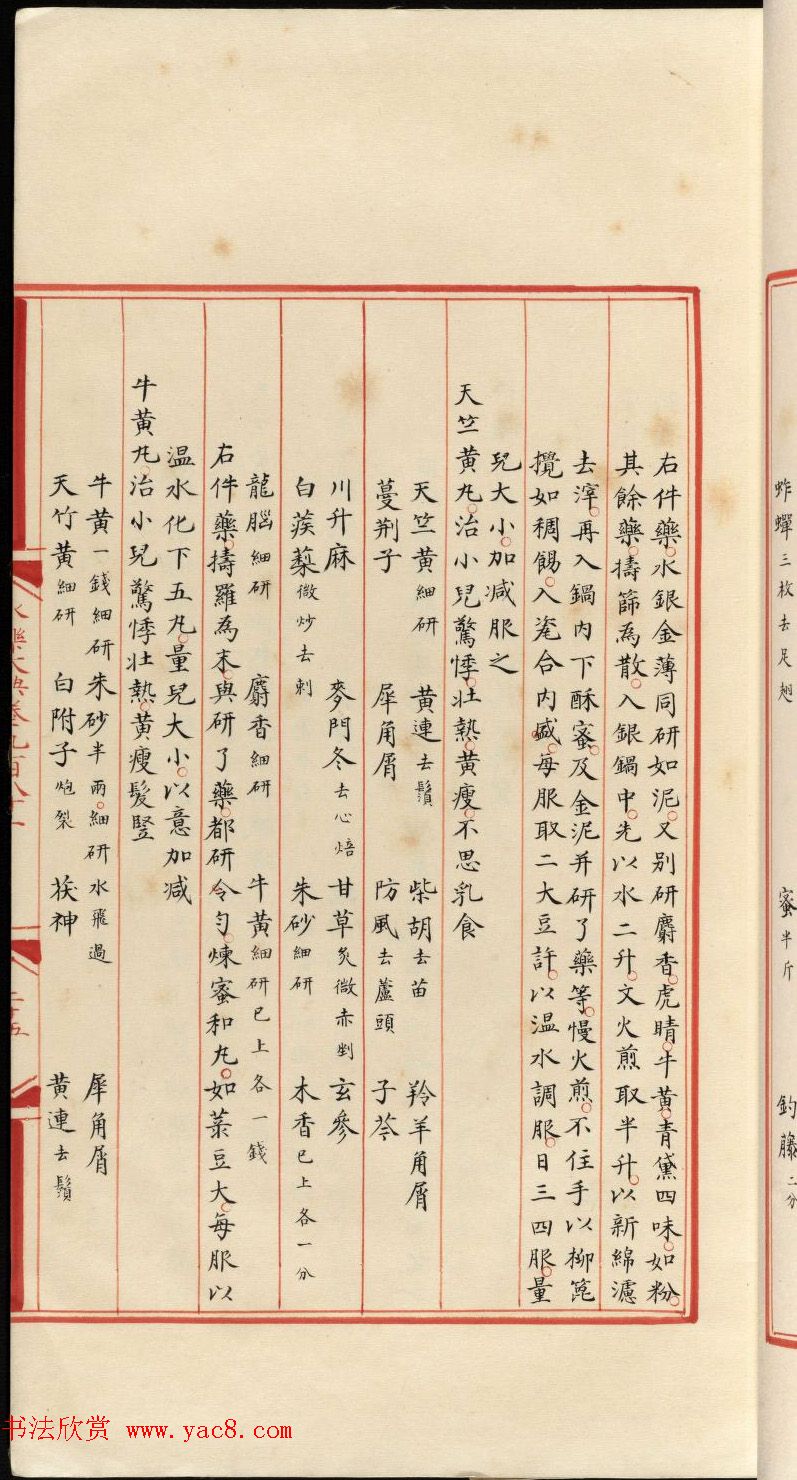 蚱蟬三枚去足翅 蜜半斤 釣藤二分
右件藥水銀金薄同研如泥又別研麝香虎睛牛黄青黛四味如粉
其餘藥擣篩為散入銀鍋中先以水二升文火煎取半升以新綿濾
去滓再入鍋內下酥蜜及金泥并研了藥等慢火煎不住手以柳篦
攪如稠餳入瓷合內盛每服取二大豆許以温水調服日三四服量
兒大小加减服之
天竺黄丸治小兒驚悸壯熱黄瘦不思乳食
天竺黄細研 黄連去鬚 柴胡去苗 羚羊角屑
蔓荆子 犀角屑 防風去蘆頭 子芩
川升麻 麥門冬去心焙 甘草炙微赤剉 玄參
白蒺蔾微炒去刺 朱砂細研 木香已上各一分
龍腦細研 麝香細研 牛黄細研已上各一錢
右件藥擣羅為末與研了藥都研令勻煉蜜和丸如菉豆大每服以
温水化下五丸量兒大小以意加减
牛黄丸治小兒驚悸壯熱黄瘦髮豎
牛黄一錢細研 朱砂半兩細研水飛過 犀角屑
天竹黄細研 白附子炮裂 茯神 黄連去鬚
永樂大典卷九百八十一 二十五
书法欣赏 www.yac8.com